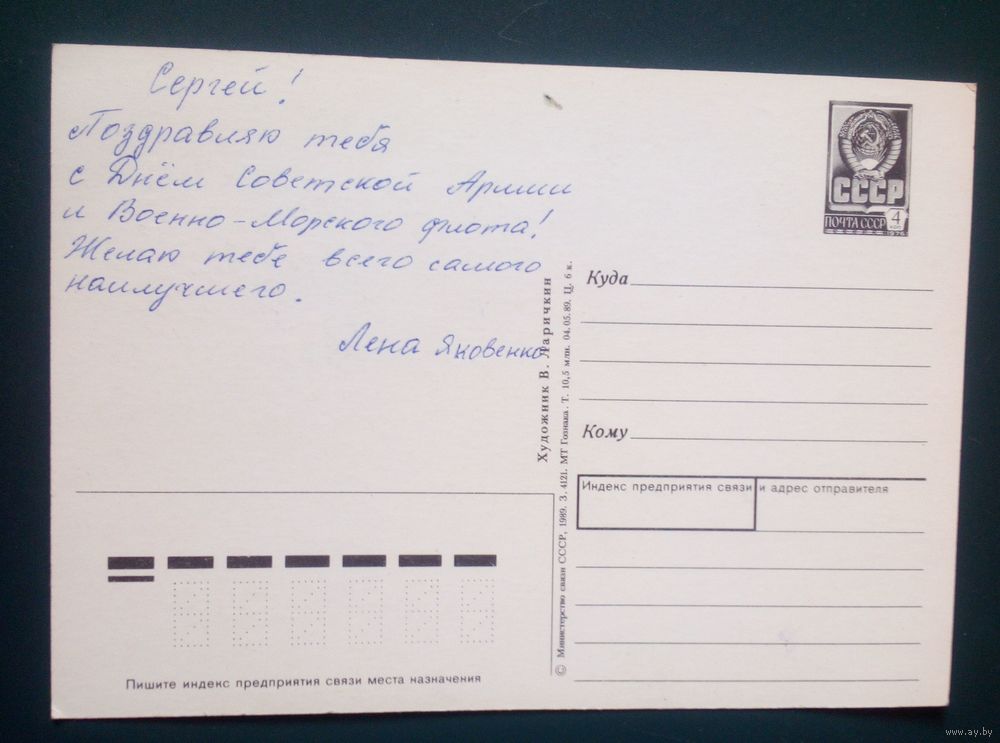 Сергей!
Поздравляю тебя
с Днём Советской Армии
и Военно-Морского флота!
Желаю тебе всего самого
наилучшего.
Лена Яковенко
Пишите индекс предприятия связи места назначения
Художник В. Ларичкин
© Министерство связи СССР, 1989. З. 4121. МТ Гознака. Т. 10,5 млн. 04.05.89. Ц. 6 к.
СССР
ПОЧТА СССР 4 коп
1976
Куда
Кому
Индекс предприятия связи и адрес отправителя
www.ay.by